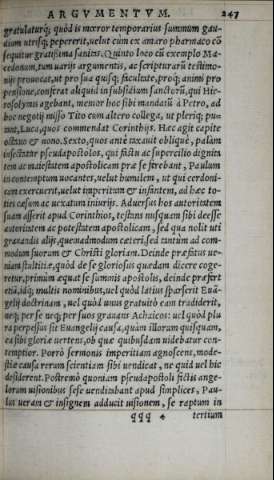 ARGVMENTVM. 247
gratulaturq; quòd is mœror temporarius summum gau-
dium utrisq; pepererit, uelut cùm ex amaro pharmaco cō
sequitur gratissima sanitas. Quinto loco cū exemplo Ma-
cedonum, tum uarijs argumentis, ac scripturarū testimo-
nijs prouocat, ut pro sua quisq; facultate, proq; animi pro
pensione, conferat aliquid in subsidium sanctorū, qui Hie-
rosolymis agebant, memor hoc sibi mandatū à Petro, ad
hoc negotij misso Tito cum altero collega, ut pleriq; pu-
tant, Luca, quos commendat Corinthijs. Hæc agit capite
octauo & nono. Sexto, quos antè taxauit obliquè, palàm
insectatur pseudapostolos, qui fictu ac supercilio dignita
tem ac maiestatem apostolicam præ se ferebant, Paulum
in contemptum uocantes, uelut humilem, ut qui cerdoni-
cam exercuerit, uelut imperitum & infantem, ad hæc to-
ties cæsum ac uexatum iniurijs. Aduersus hos autoritatem
suam asserit apud Corinthios, testans nusquam sibi deesse
autoritatem ac potestatem apostolicam, sed qua nolit uti
grauandis alijs, quemadmodum cæteri, sed tantùm ad com-
modum suorum & Christi gloriam. Deinde præfatus ue-
niam stultitiæ, quòd de se gloriosius quædam dicere coge-
retur, primùm æquat se summis apostolis, deinde præfert
etiā, idq; multis nominibus, uel quòd latius sparserit Euā-
gelij doctrinam, uel quòd unus gratuitò eam tradiderit,
neq; per se neq; per suos grauans Achaicos: uel quòd plu
ra perpessus sit Euangelij causa, quàm illorum quisquam,
ea sibi gloriæ uertens, ob quæ quibusdam uidebatur con-
temptior. Porrò sermonis imperitiam agnoscens, mode-
stiæ causa rerum scientiam sibi uendicat, ne quid uel hic
desiderent. Postremò quoniam pseudapostoli fictis ange-
lorum uisionibus sese uendicabant apud simplices, Pau-
lus ueram & insignem adducit uisionem, se raptum in
qqq 4 tertium